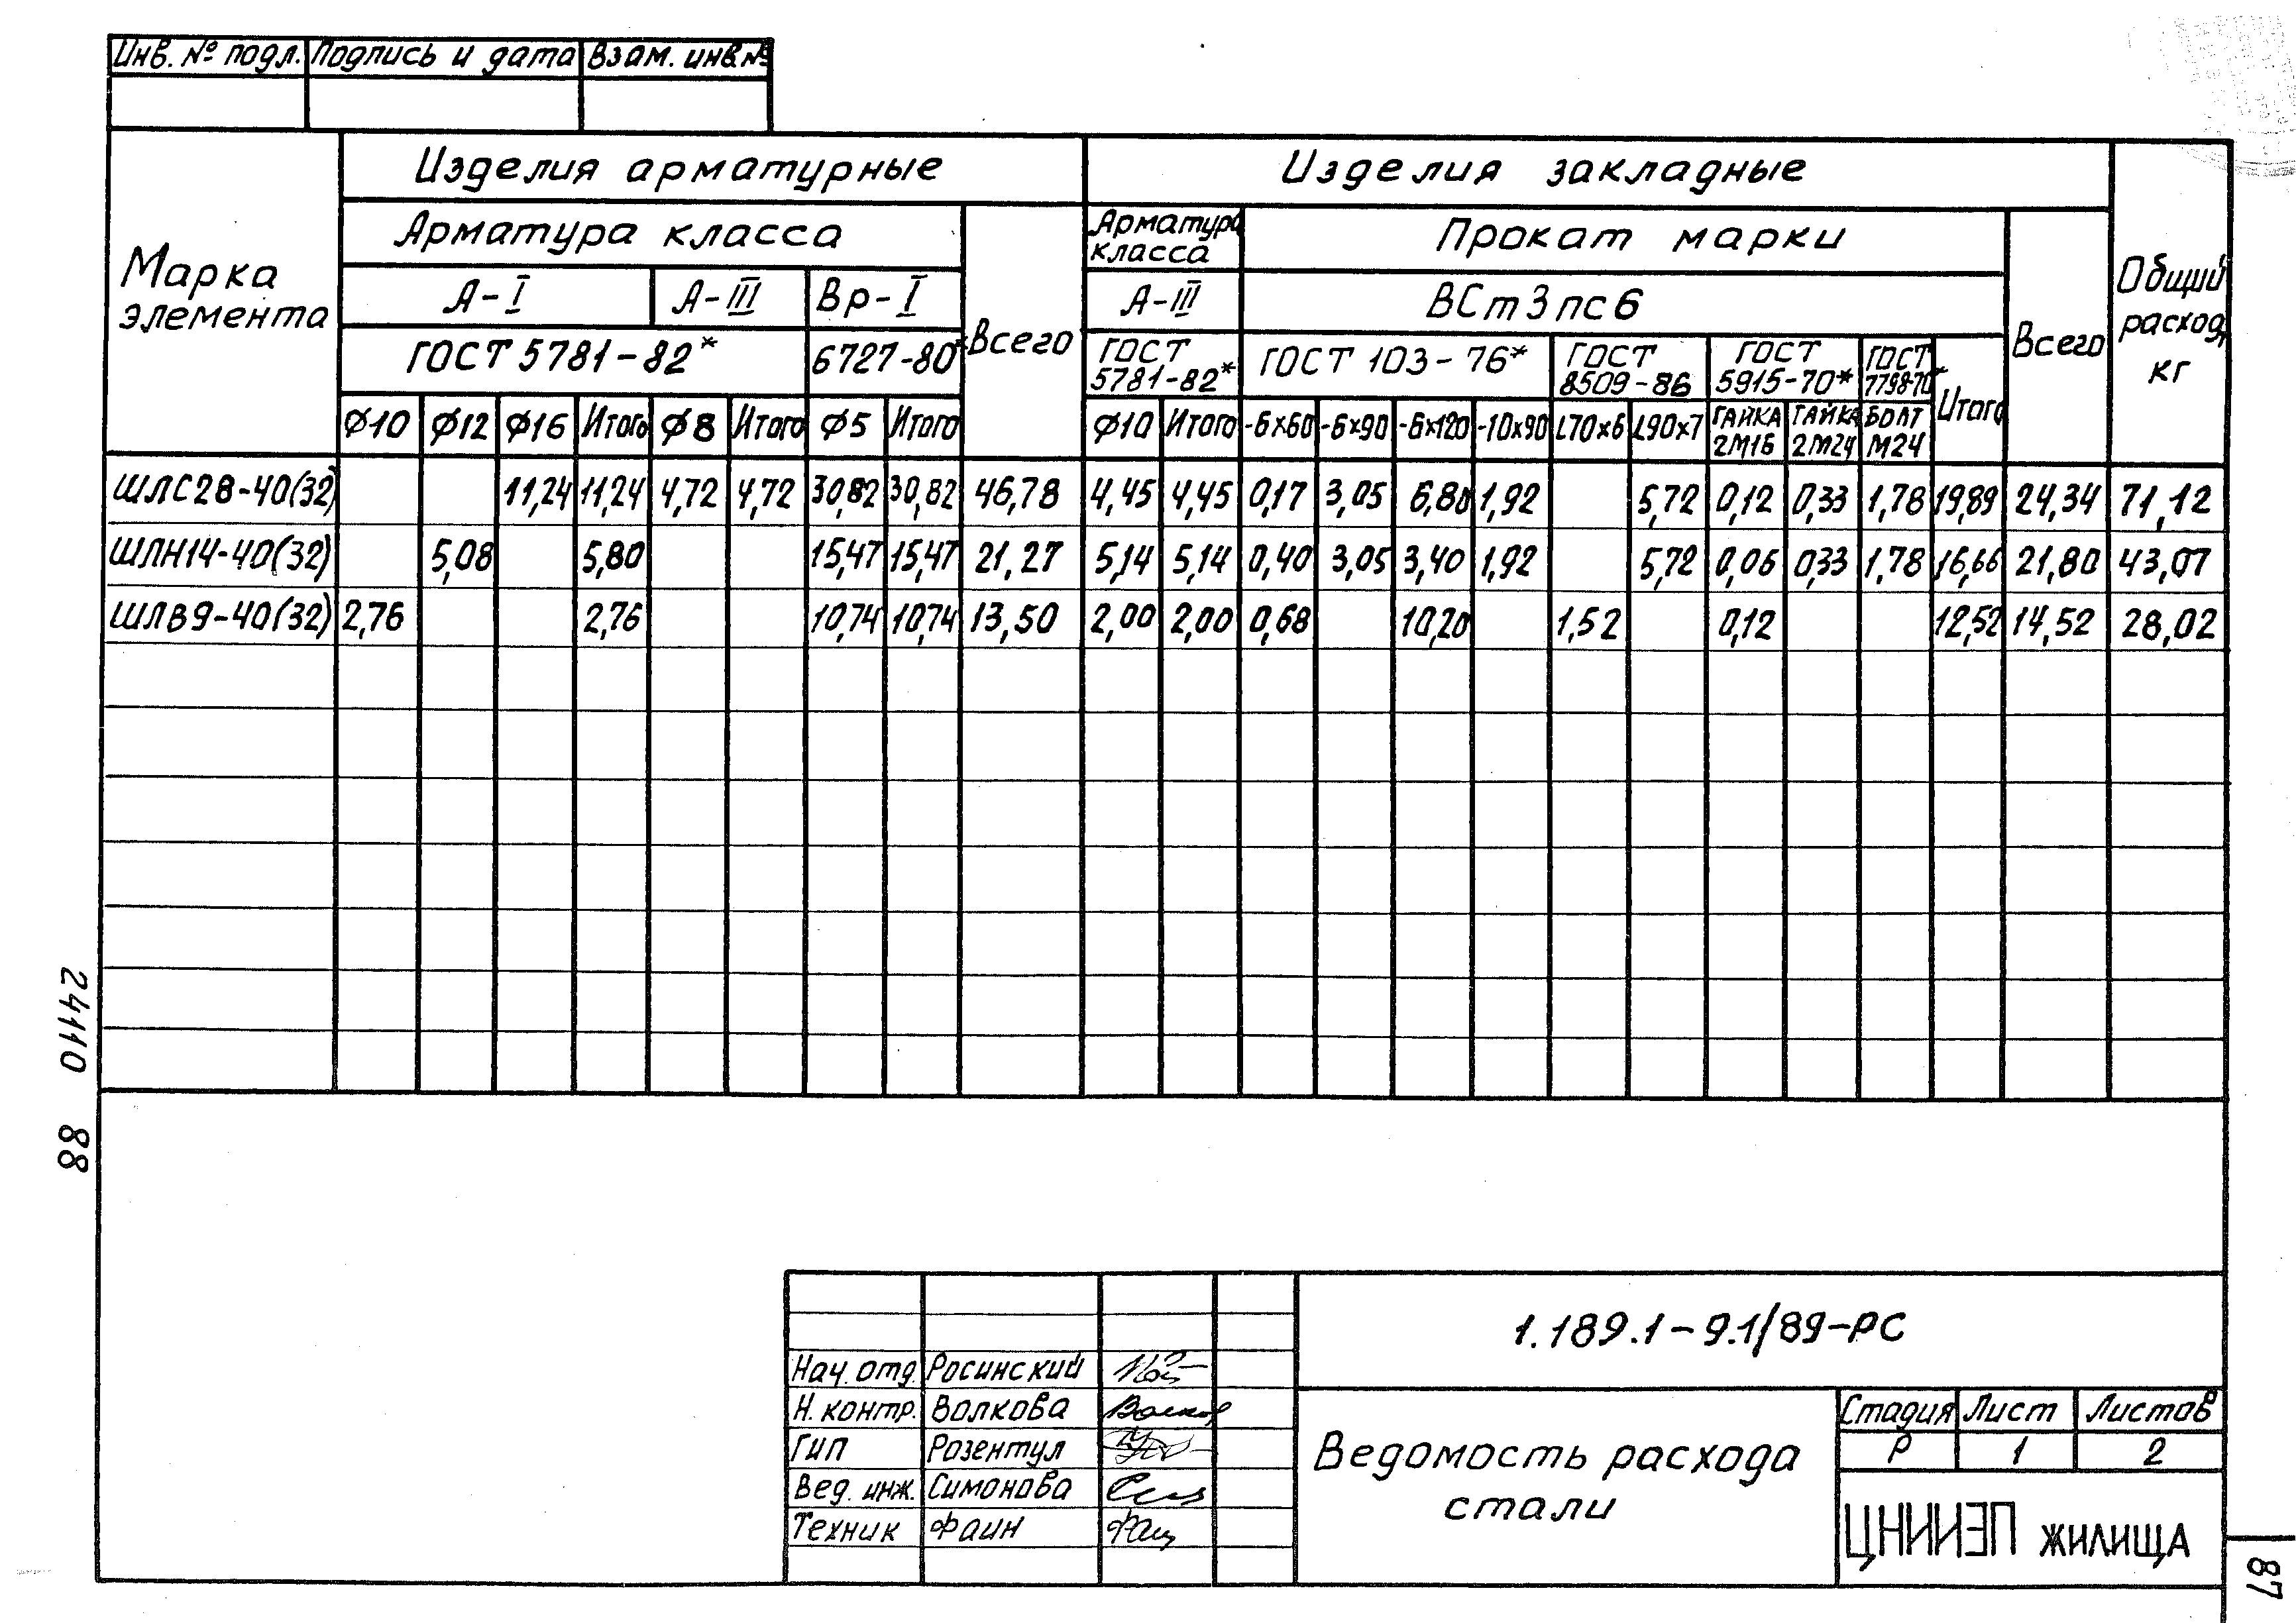 Инв. № подл. Подпись и дата Взам. инв. №
Марка элемента
Изделия арматурные
Изделия закладные
Общий расход, кг
Арматура класса
Всего
Арматура класса
Прокат марки
Всего
А-I А-III Вр-I
А-III
ВСт3пс6
ГОСТ 5781-82* 6727-80*
ГОСТ 5781-82* ГОСТ 103-76* ГОСТ 8509-86 ГОСТ 5915-70* ГОСТ 7798-70* Итого
ф10 ф12 ф16 Итого ф8 Итого ф5 Итого
ф10 Итого -6х60 -6х90 -6х120 -10х90 L70х6 L90х7 ГАЙКА 2М16 ГАЙКА 2М24 БОЛТ М24
ШЛС28-40(32) 11,24 11,24 4,72 4,72 30,82 30,82 46,78 4,45 4,45 0,17 3,05 6,80 1,92 5,72 0,12 0,33 1,78 19,89 24,34 71,12
ШЛН14-40(32) 5,08 5,80 15,47 15,47 21,27 5,14 5,14 0,40 3,05 3,40 1,92 5,72 0,06 0,33 1,78 16,66 21,80 43,07
ШЛВ9-40(32) 2,76 2,76 10,74 10,74 13,50 2,00 2,00 0,68 10,20 1,52 0,12 12,52 14,52 28,02
24110 88
1.189.1-9.1/89-РС
Нач. отд. Росинский
Н. контр. Волкова
ГИП Розентул
Вед. инж. Симонова
Техник Фаин
Ведомость расхода
стали
Стадия Лист Листов
Р 1 2
ЦНИИЭП ЖИЛИЩА
87